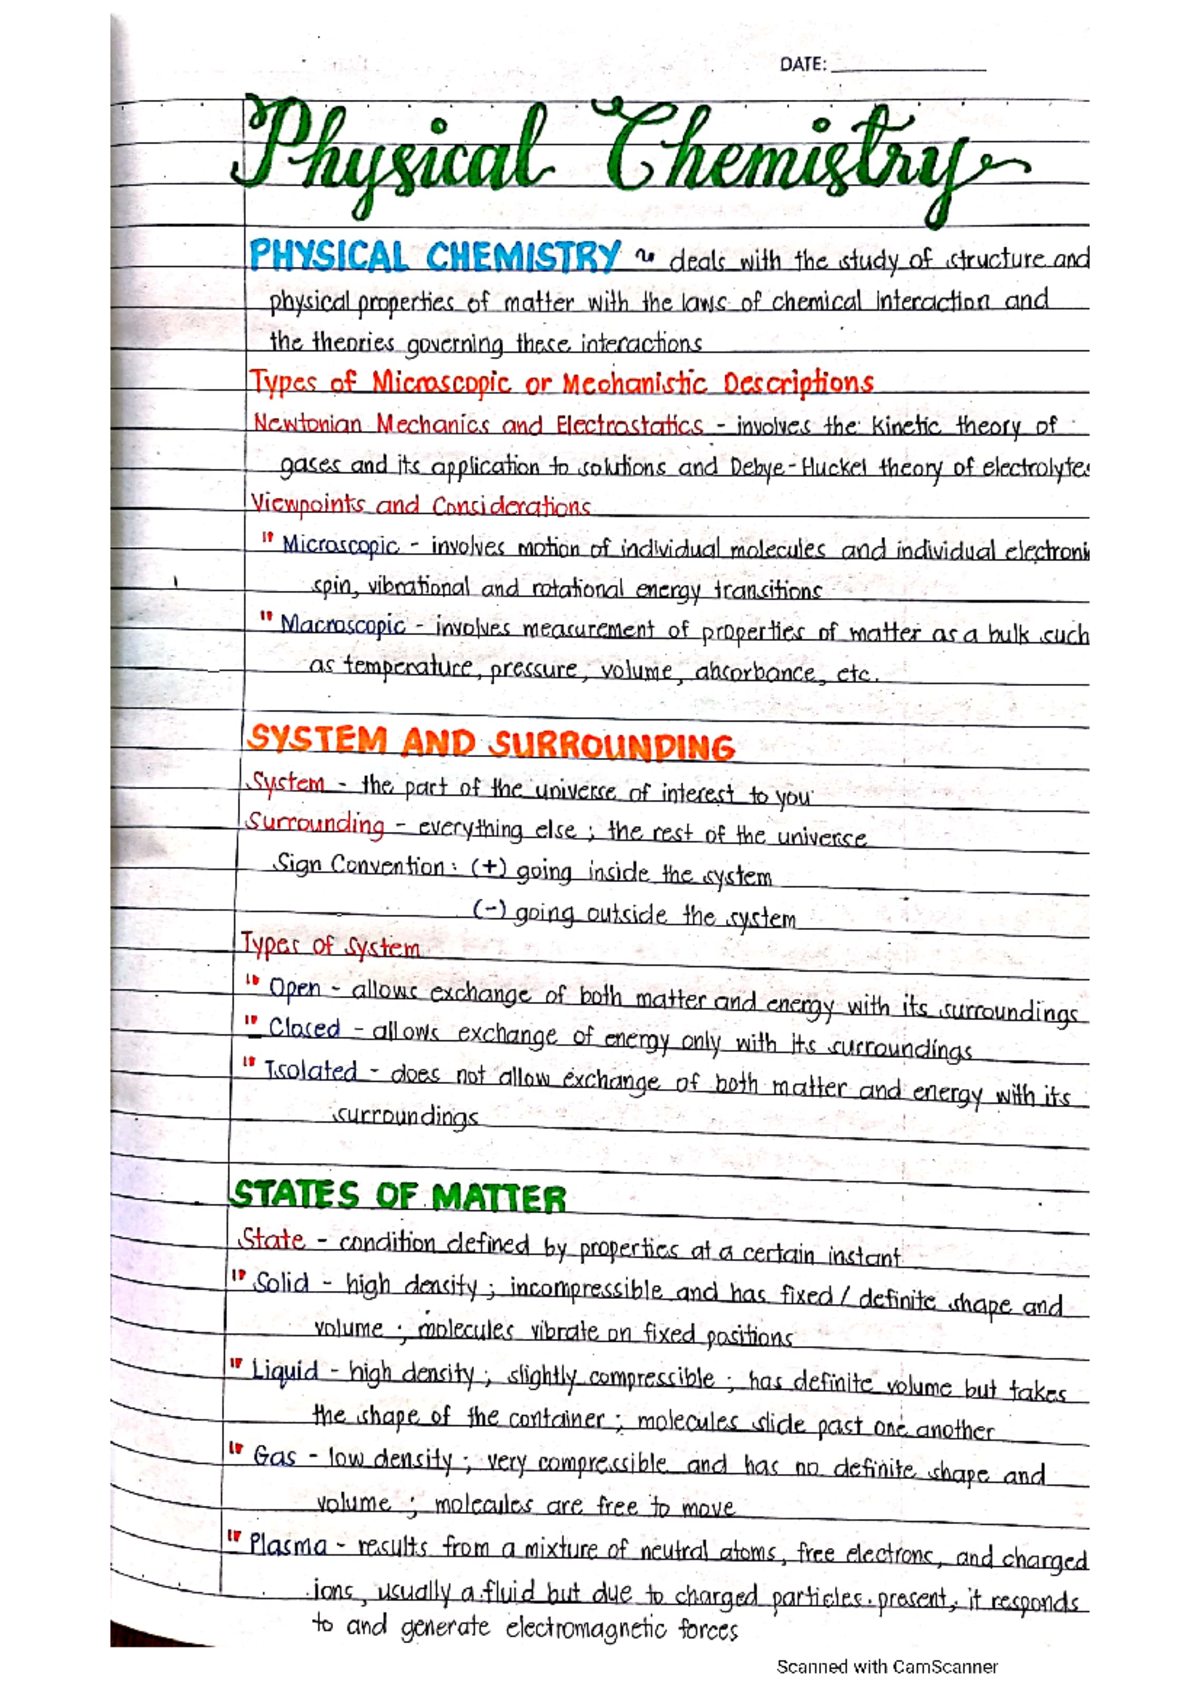 DATE:
Physical Chemistry
PHYSICAL CHEMISTRY ~ deals with the study of structure and
physical properties of matter with the laws of chemical interaction and
the theories governing these interactions
Types of Microscopic or Mechanistic Descriptions
Newtonian Mechanics and Electrostatics - involves the kinetic theory of
gases and its application to solutions and Debye-Huckel theory of electrolytes
Viewpoints and Considerations
" Microscopic - involves motion of individual molecules and individual electroni
spin, vibrational and rotational energy transitions
" Macroscopic - involves measurement of properties of matter as a bulk such
as temperature, pressure, volume, absorbance, etc.
SYSTEM AND SURROUNDING
System - the part of the universe of interest to you
Surrounding - everything else ; the rest of the universe
Sign Convention : (+) going inside the system
(-) going outside the system
Types of system
" Open - allows exchange of both matter and energy with its surroundings
" Closed - allows exchange of energy only with its surroundings
" Isolated - does not allow exchange of both matter and energy with its
surroundings
STATES OF MATTER
State - condition defined by properties at a certain instant
" Solid - high density ; incompressible and has fixed / definite shape and
volume ; molecules vibrate on fixed positions
" Liquid - high density ; slightly compressible ; has definite volume but takes
the shape of the container ; molecules slide past one another
" Gas - low density ; very compressible and has no definite shape and
volume ; molecules are free to move
" Plasma - results from a mixture of neutral atoms, free electrons, and charged
ions, usually a fluid but due to charged particles present, it responds
to and generate electromagnetic forces
Scanned with CamScanner